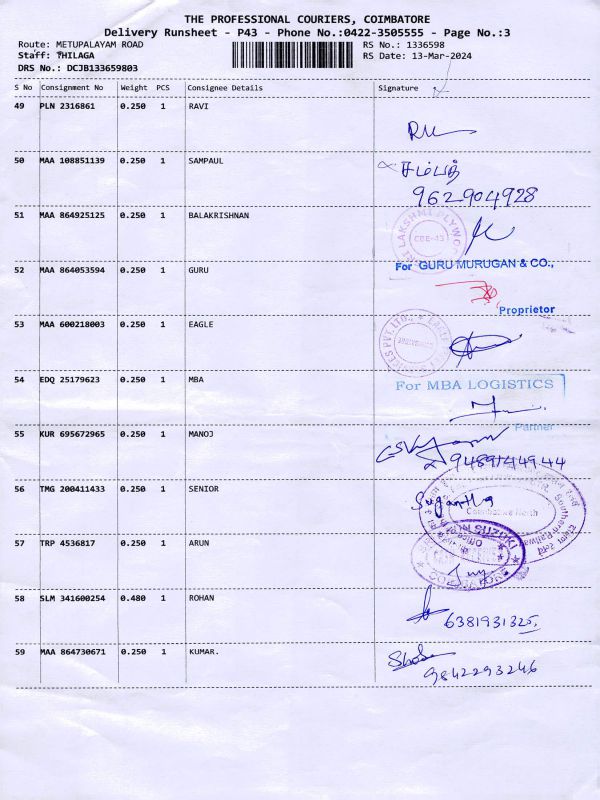 THE PROFESSIONAL COURIERS, COIMBATORE
Delivery Runsheet - P43 - Phone No.:0422-3505555 - Page No.:3
Route: METUPALAYAM ROAD RS No.: 1336598
Staff: THILAGA RS Date: 13-Mar-2024
DRS No.: DCJB133659803
S No Consignment No Weight PCS Consignee Details Signature
49 PLN 2316861 0.250 1 RAVI
50 MAA 108851139 0.250 1 SAMPAUL சம்பத்
962904928
51 MAA 864925125 0.250 1 BALAKRISHNAN
SRI LAKSHMI PLYWOOD
CBE-43
52 MAA 864053594 0.250 1 GURU For GURU MURUGAN & CO.,
Proprietor
53 MAA 600218003 0.250 1 EAGLE
54 EDQ 25179623 0.250 1 MBA For MBA LOGISTICS
Partner
55 KUR 695672965 0.250 1 MANOJ
9489144944
56 TMG 200411433 0.250 1 SENIOR Sugantha
Coimbatore North
Southern Railway
57 TRP 4536817 0.250 1 ARUN
SUZUKI
COIMBATORE
58 SLM 341600254 0.480 1 ROHAN 6381931325
59 MAA 864730671 0.250 1 KUMAR.
9842293246